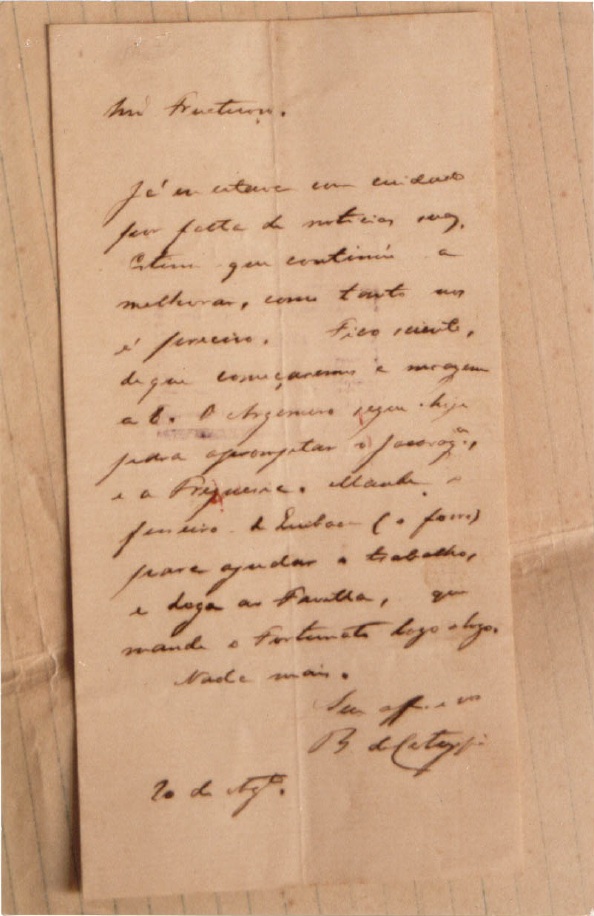 Fructuoso.
Já eu estava com cuidado
por falta de noticias suas.
Estimo que continúe a
melhorar, como tanto nos
é preciso. Fico sciente,
de que começaremos a moagem
a 6. O Argemiro segue hoje
para apromptar o
e a Freguesia. Mande o
ferreiro de (o forro)
para ajudar o trabalho,
e diga ao Favilla, que
mande o Fortunato logo e logo.
Nada mais.
Seu
B. de Cotegipe
20 de Agto.